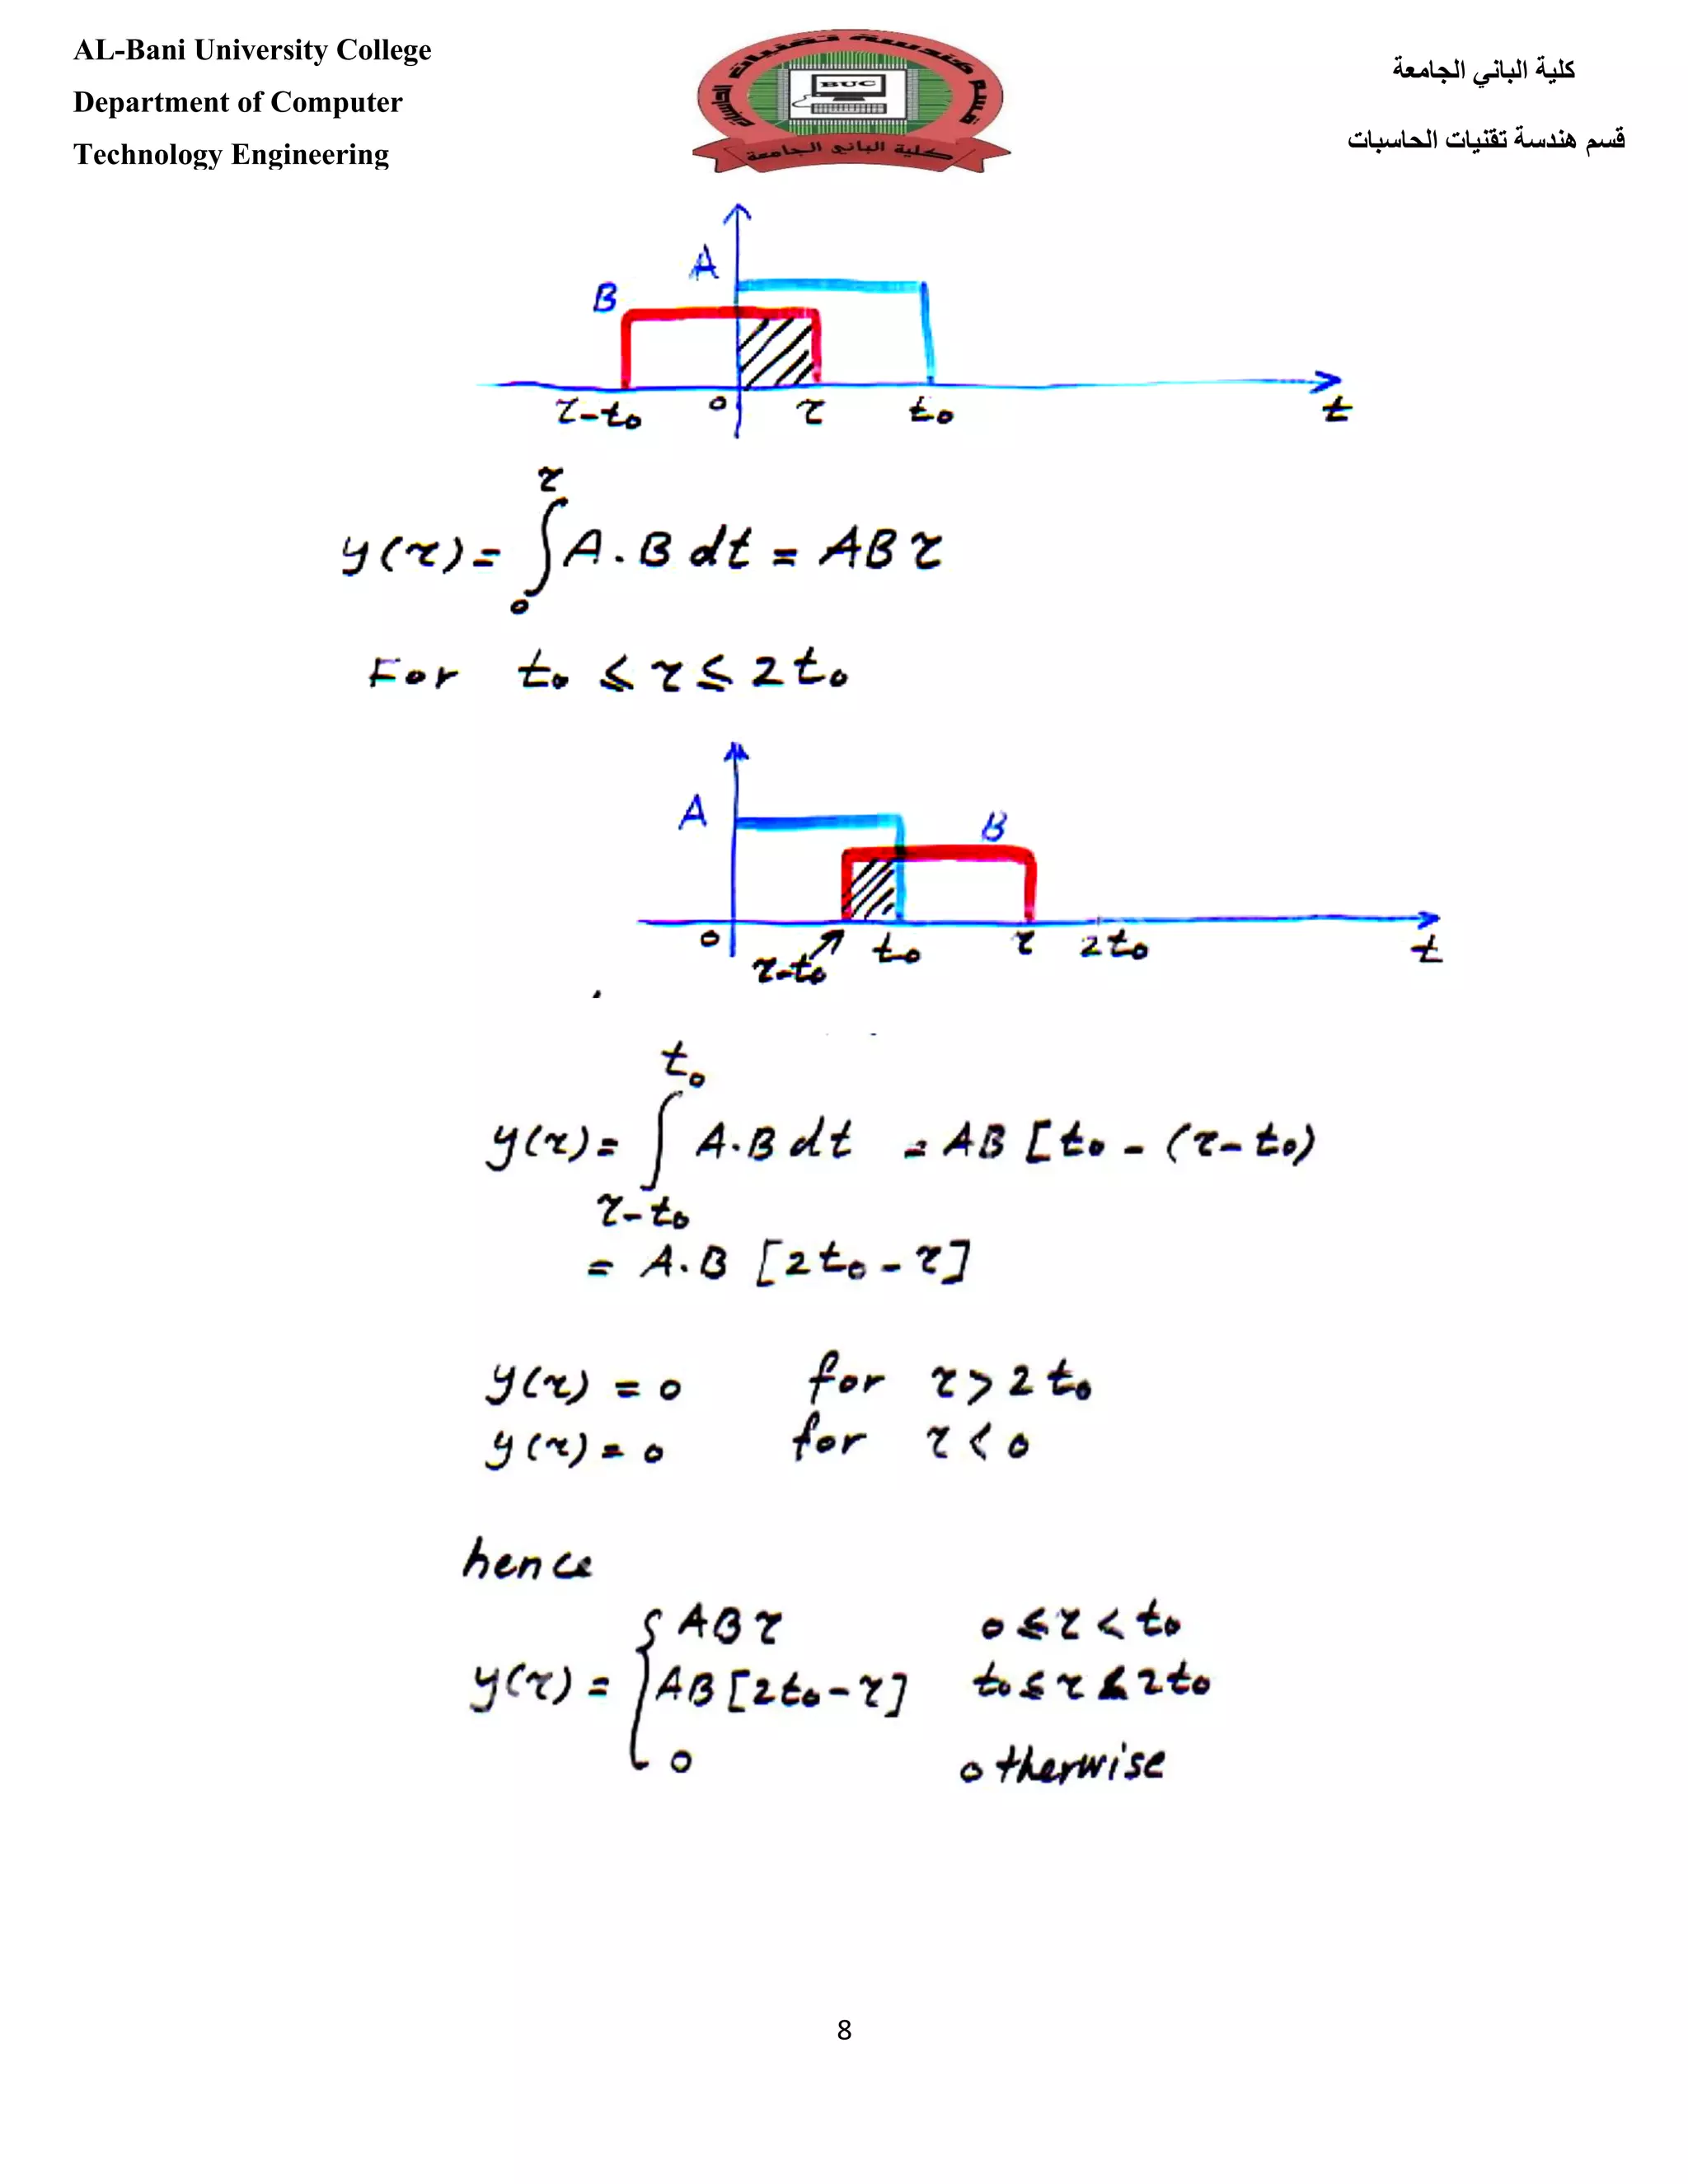 AL-Bani University College
Department of Computer
Technology Engineering
كلية الباني الجامعة
قسم هندسة تقنيات الحاسبات
قسم هندسة تقنيات الحاسبات
BUC
كلية الباني الجامعة
A
B
τ-t₀ 0 τ t₀ t
y(τ) = ∫₀^τ A.B dt = AB τ
For t₀ ≤ τ ≤ 2t₀
A B
0 τ-t₀ t₀ τ 2t₀ t
y(τ) = ∫_{τ-t₀}^{t₀} A.B dt = AB [t₀ - (τ-t₀)
= A.B [2t₀ - τ]
y(τ) = 0 for τ > 2t₀
y(τ) = 0 for τ < 0
hence
y(τ) = { ABτ 0 ≤ τ < t₀
AB[2t₀-τ] t₀ ≤ τ ≤ 2t₀
0 otherwise
8